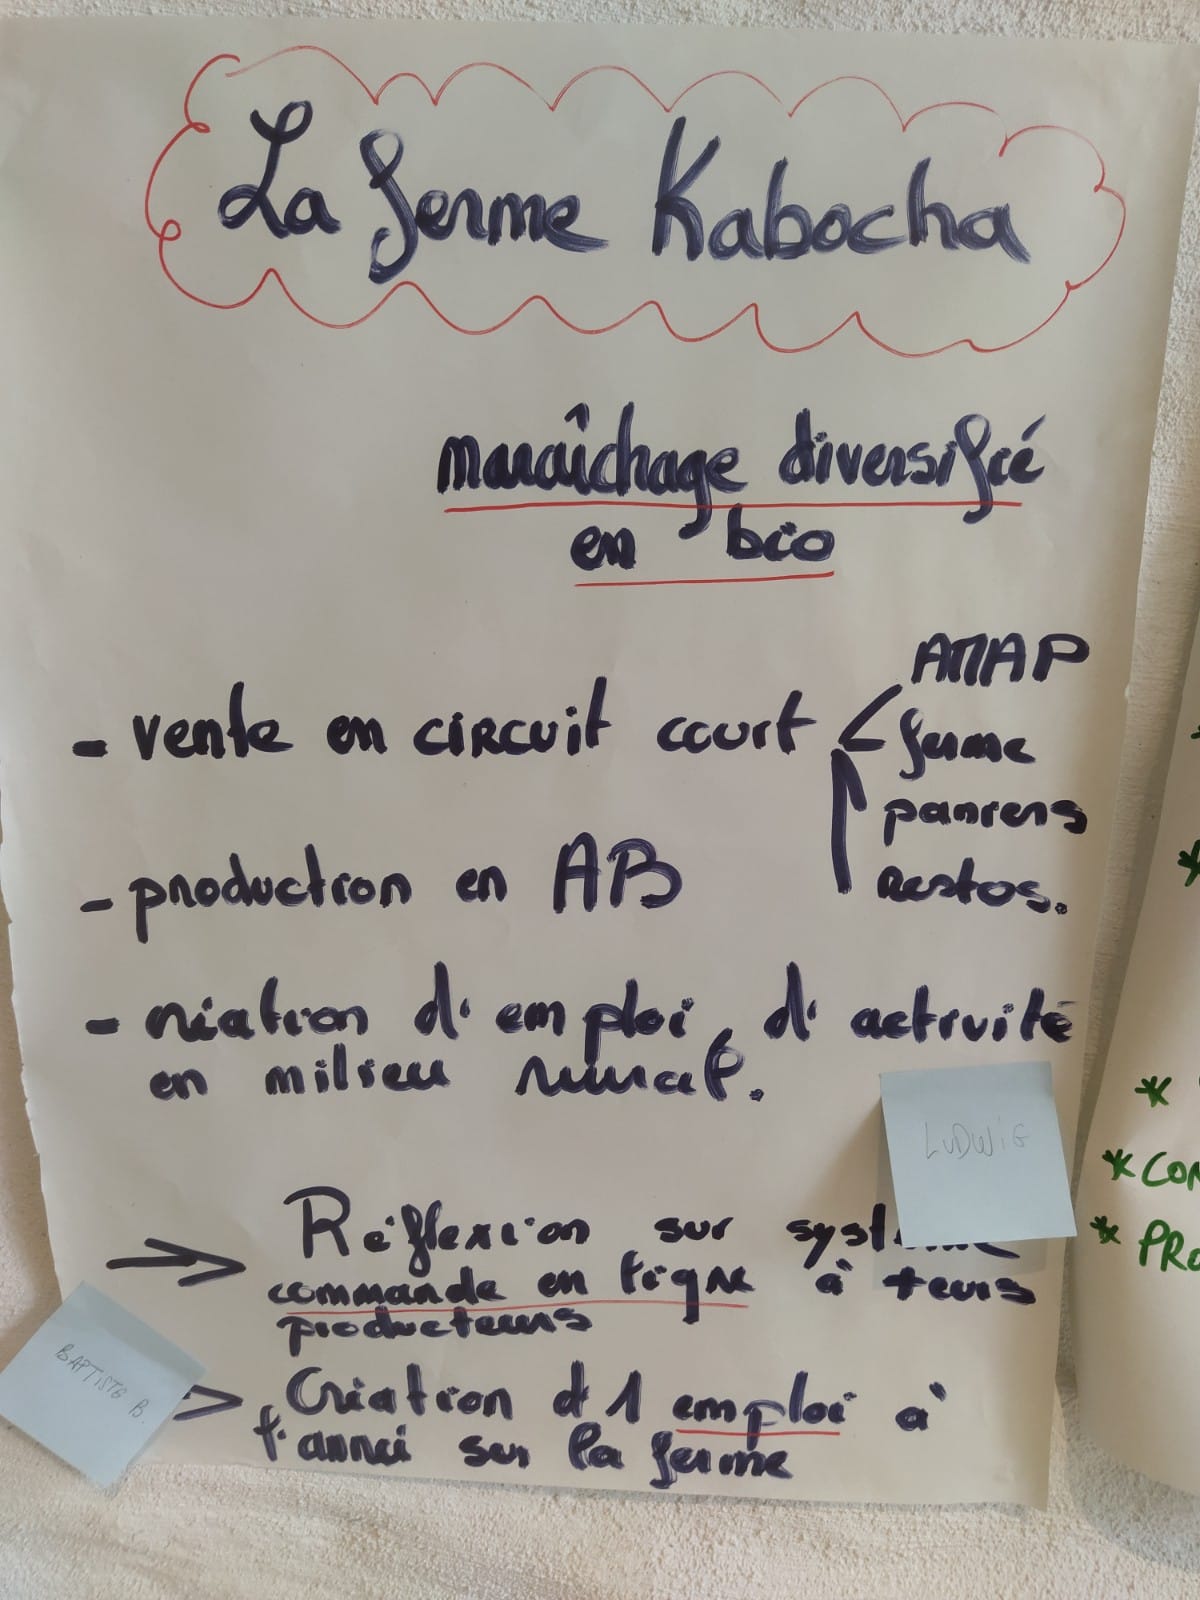 La ferme Kabocha
maraîchage diversifié
en bio
- vente en circuit court < AMAP
ferme
paniers
restos.
- production en AB
- création d'emploi, d'activité
en milieu rural.
LUDWIG
→ Réflexion sur système
commande en ligne à +eurs
producteurs
BAPTISTE B.
→ Création d'1 emploi à
l'année sur la ferme
*
*
* CON
* PRO